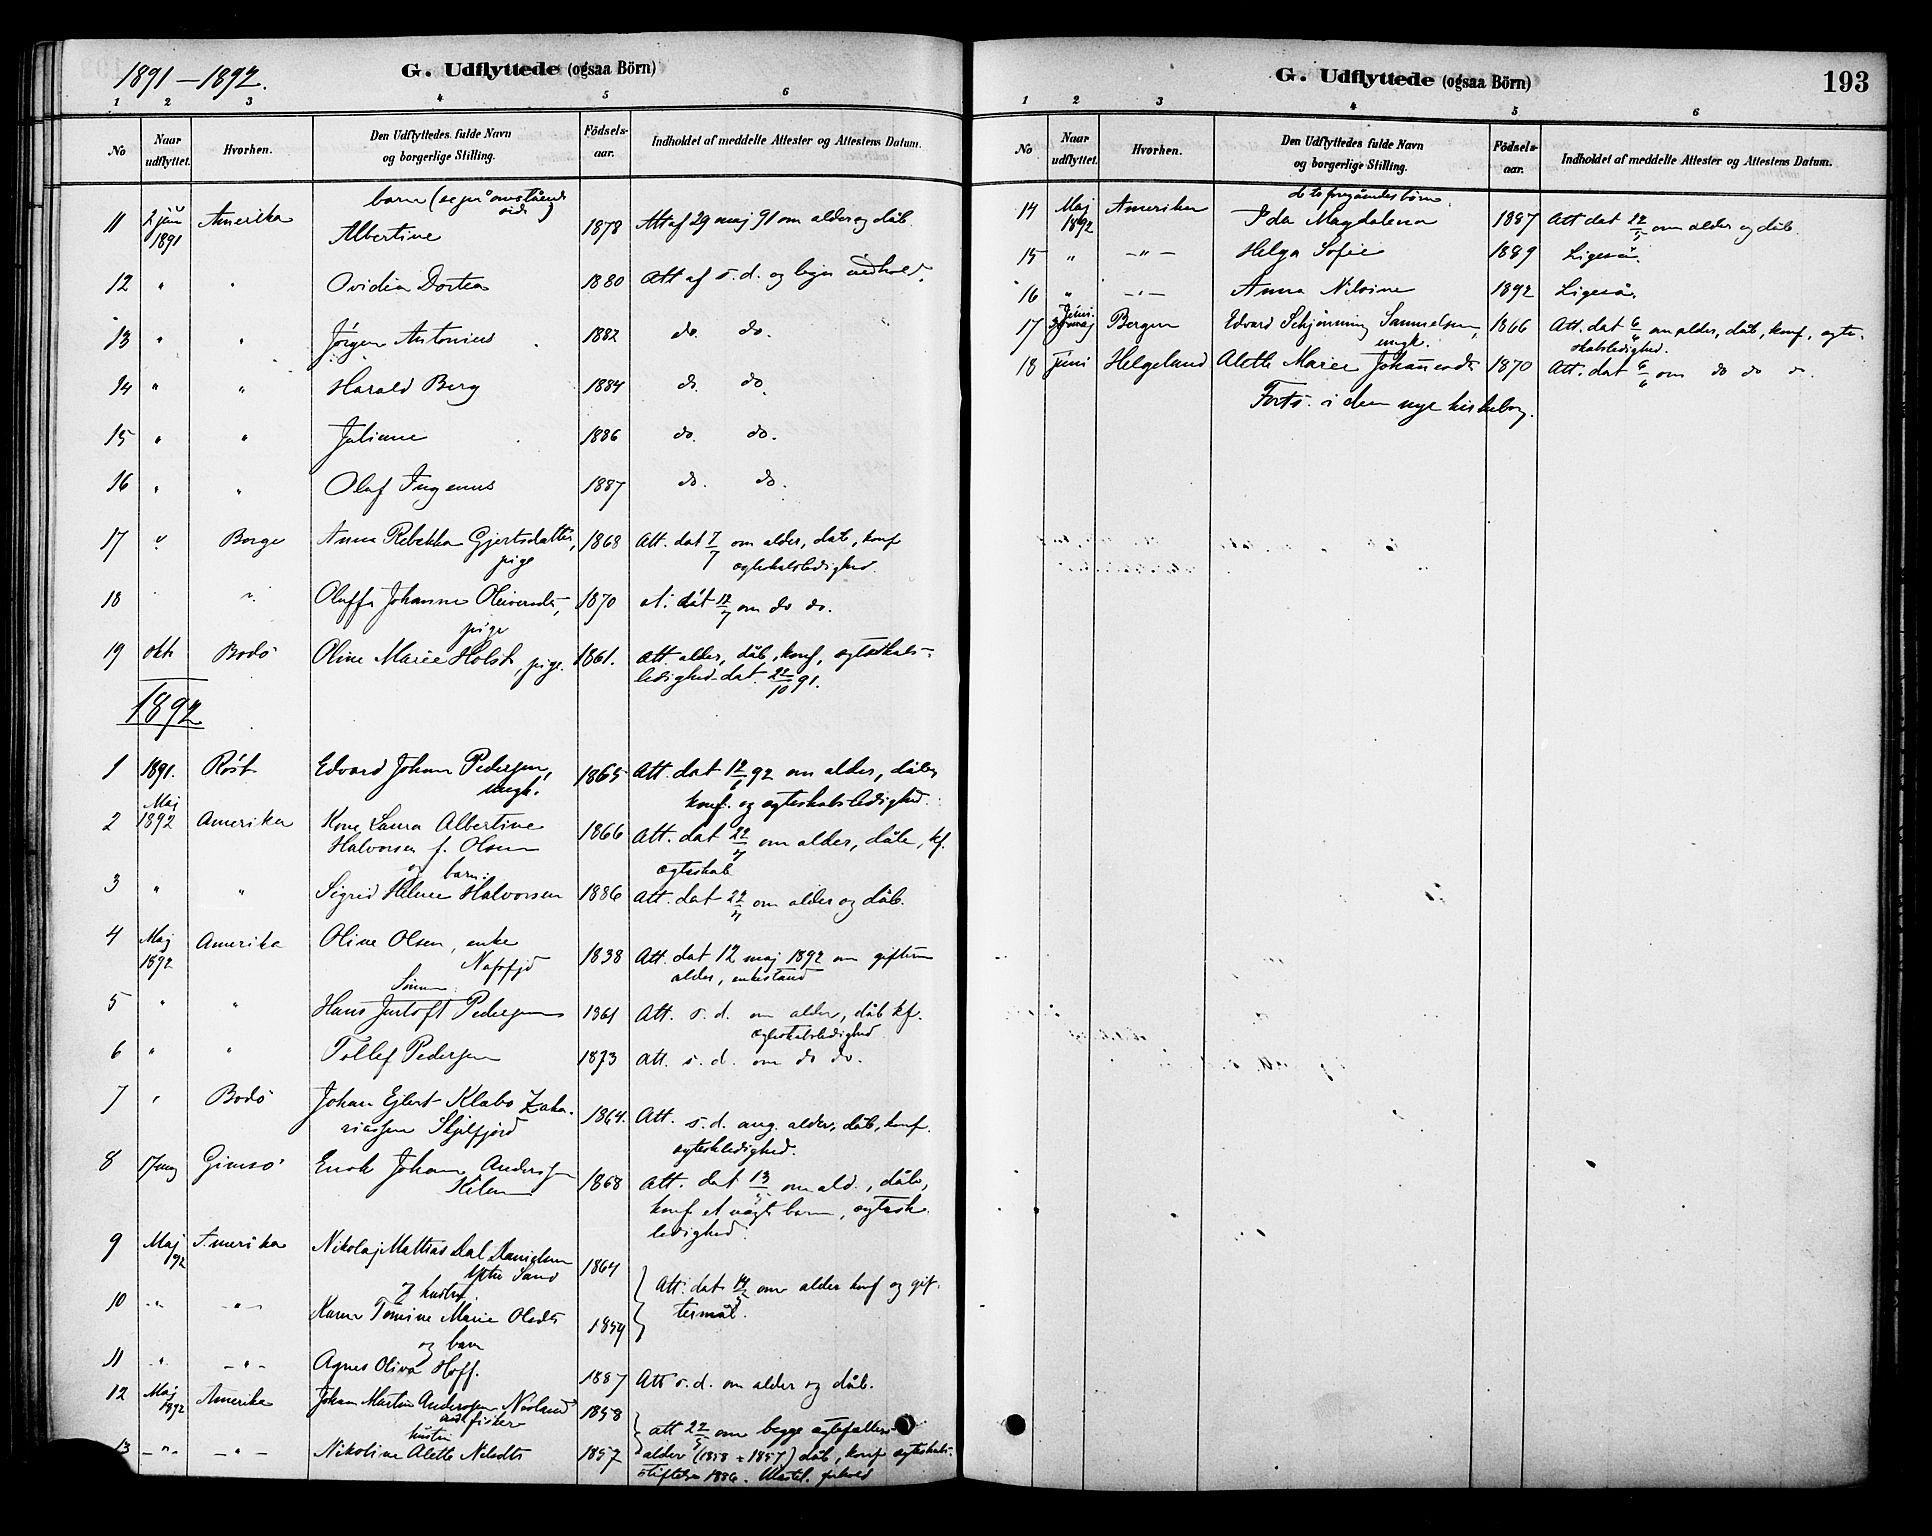 1891–1892.
G. Udflyttede (ogsaa Börn)
1 2 3 4 5 6
No
Naar udflyttet.
Hvorhen.
Den Udflyttedes fulde Navn og borgerlige Stilling.
Födsels-aar.
Indholdet af meddelte Attester og Attestens Datum.
barn (se på omstående side)
11 2 jun 1891 Amerika Albertine 1878 Att af 29 maj 91 om alder og dåb.
12 " " Ovidia Dortea 1880 Att af s. d. og lign indhold.
13 " " Jørgen Antonius 1882 do. do.
14 " " Harald Berg 1884 do. do.
15 " " Juliane 1886 do. do.
16 " " Olaf Ingemus 1887 do. do.
17 " Borge Anna Rebekka Gjertsdatter, 1868 Att. dat 7/7 om alder, dåb, konf
pige ægteskabsledighed.
18 " Oluffa Johanne Oliversdt, 1870 A. dat 12/7 om do do.
pige
19 okt Bodö Oline Marie Holst, pige. 1861. Att. alder, dåb, konf, ægteskabs-
ledighed dat. 22/10 91.
1892
1 1891. Röst Edvard Johan Pedersen, 1865 Att. dat 12/1 92 om alder, dåb,
ungk. konf. og ægteskabsledighed.
2 Maj 1892 Amerika Kone Laura Albertine 1866 Att. dat 22/4 om alder, dåb, kf.
Halvorsen f. Olsen ægteskab
og barn:
3 " " Sigrid Helene Halvorsen 1886 Att. dat 22/4 om alder og dåb.
4 Maj 1892 Amerika Oline Olsen, enke 1838 Att. dat 12 maj 1892 om giftem
Napfjd alder, enkestand
Sönner
5 " " Hans Justoft Pedersen 1861 Att. s. d. om alder, dåb kf.
ægteskabsledighed.
6 " " Tollef Pedersen 1873 Att. s. d. om do do.
7 " Bodö Johan Ejlert Klæbo Zaka- 1864. Att. s. d. ang. alder, dåb, konf.
riassen Skjelfjord ægteskledighed.
8 17 maj Gimsö Enok Johan Anderssen 1868 Att. dat 13/5 om ald., dåb,
konf. et uægte barn, ægtesk
ledighed.
9 Maj 92 Amerika Nikolaj Mathias Dal Danielsen 1864
Ytter Sand
og hustru
10 " " Karen Tomine Marie Olsdt 1854 Att. dat 14/5 om alder konf og gif-
termål.
og barn
11 " " Agnes Oliva Hoff. 1887 Att s. d. om alder og dåb.
12 Maj 1892 Amerika Johan Martin Anderssen Nesland 1858
fisker
hustru
13 " " Nikoline Alette Nilsdt 1857 att 22/5 om begge ægtefælles
alder (1858 + 1857) dåb, konf ægteskabs-
stiftelse 1886.
G. Udflyttede (ogsaa Börn)
193
1 2 3 4 5 6
No
Naar udflyttet.
Hvorhen.
Den Udflyttedes fulde Navn og borgerlige Stilling.
Födsels-aar.
Indholdet af meddelte Attester og Attestens Datum.
de to foregåendes börn.
14 Maj 1892 Amerika Ida Magdalena 1887 Att dat 22/5 om alder og dåb.
15 " " Helga Sofie 1889 Ligeså.
16 " " Anna Nilsine 1892 Ligeså.
17 Juni Bergen Edvard Schjønning Samuelsen, 1866 Att. dat 6/6 om alder, dåb, konf, ægte-
ungk. skabsledighed.
18 juni Helgeland Alette Marie Johansdt 1870 Att. dat 6/6 om do do do.
Forts. i den nye kirkebog.